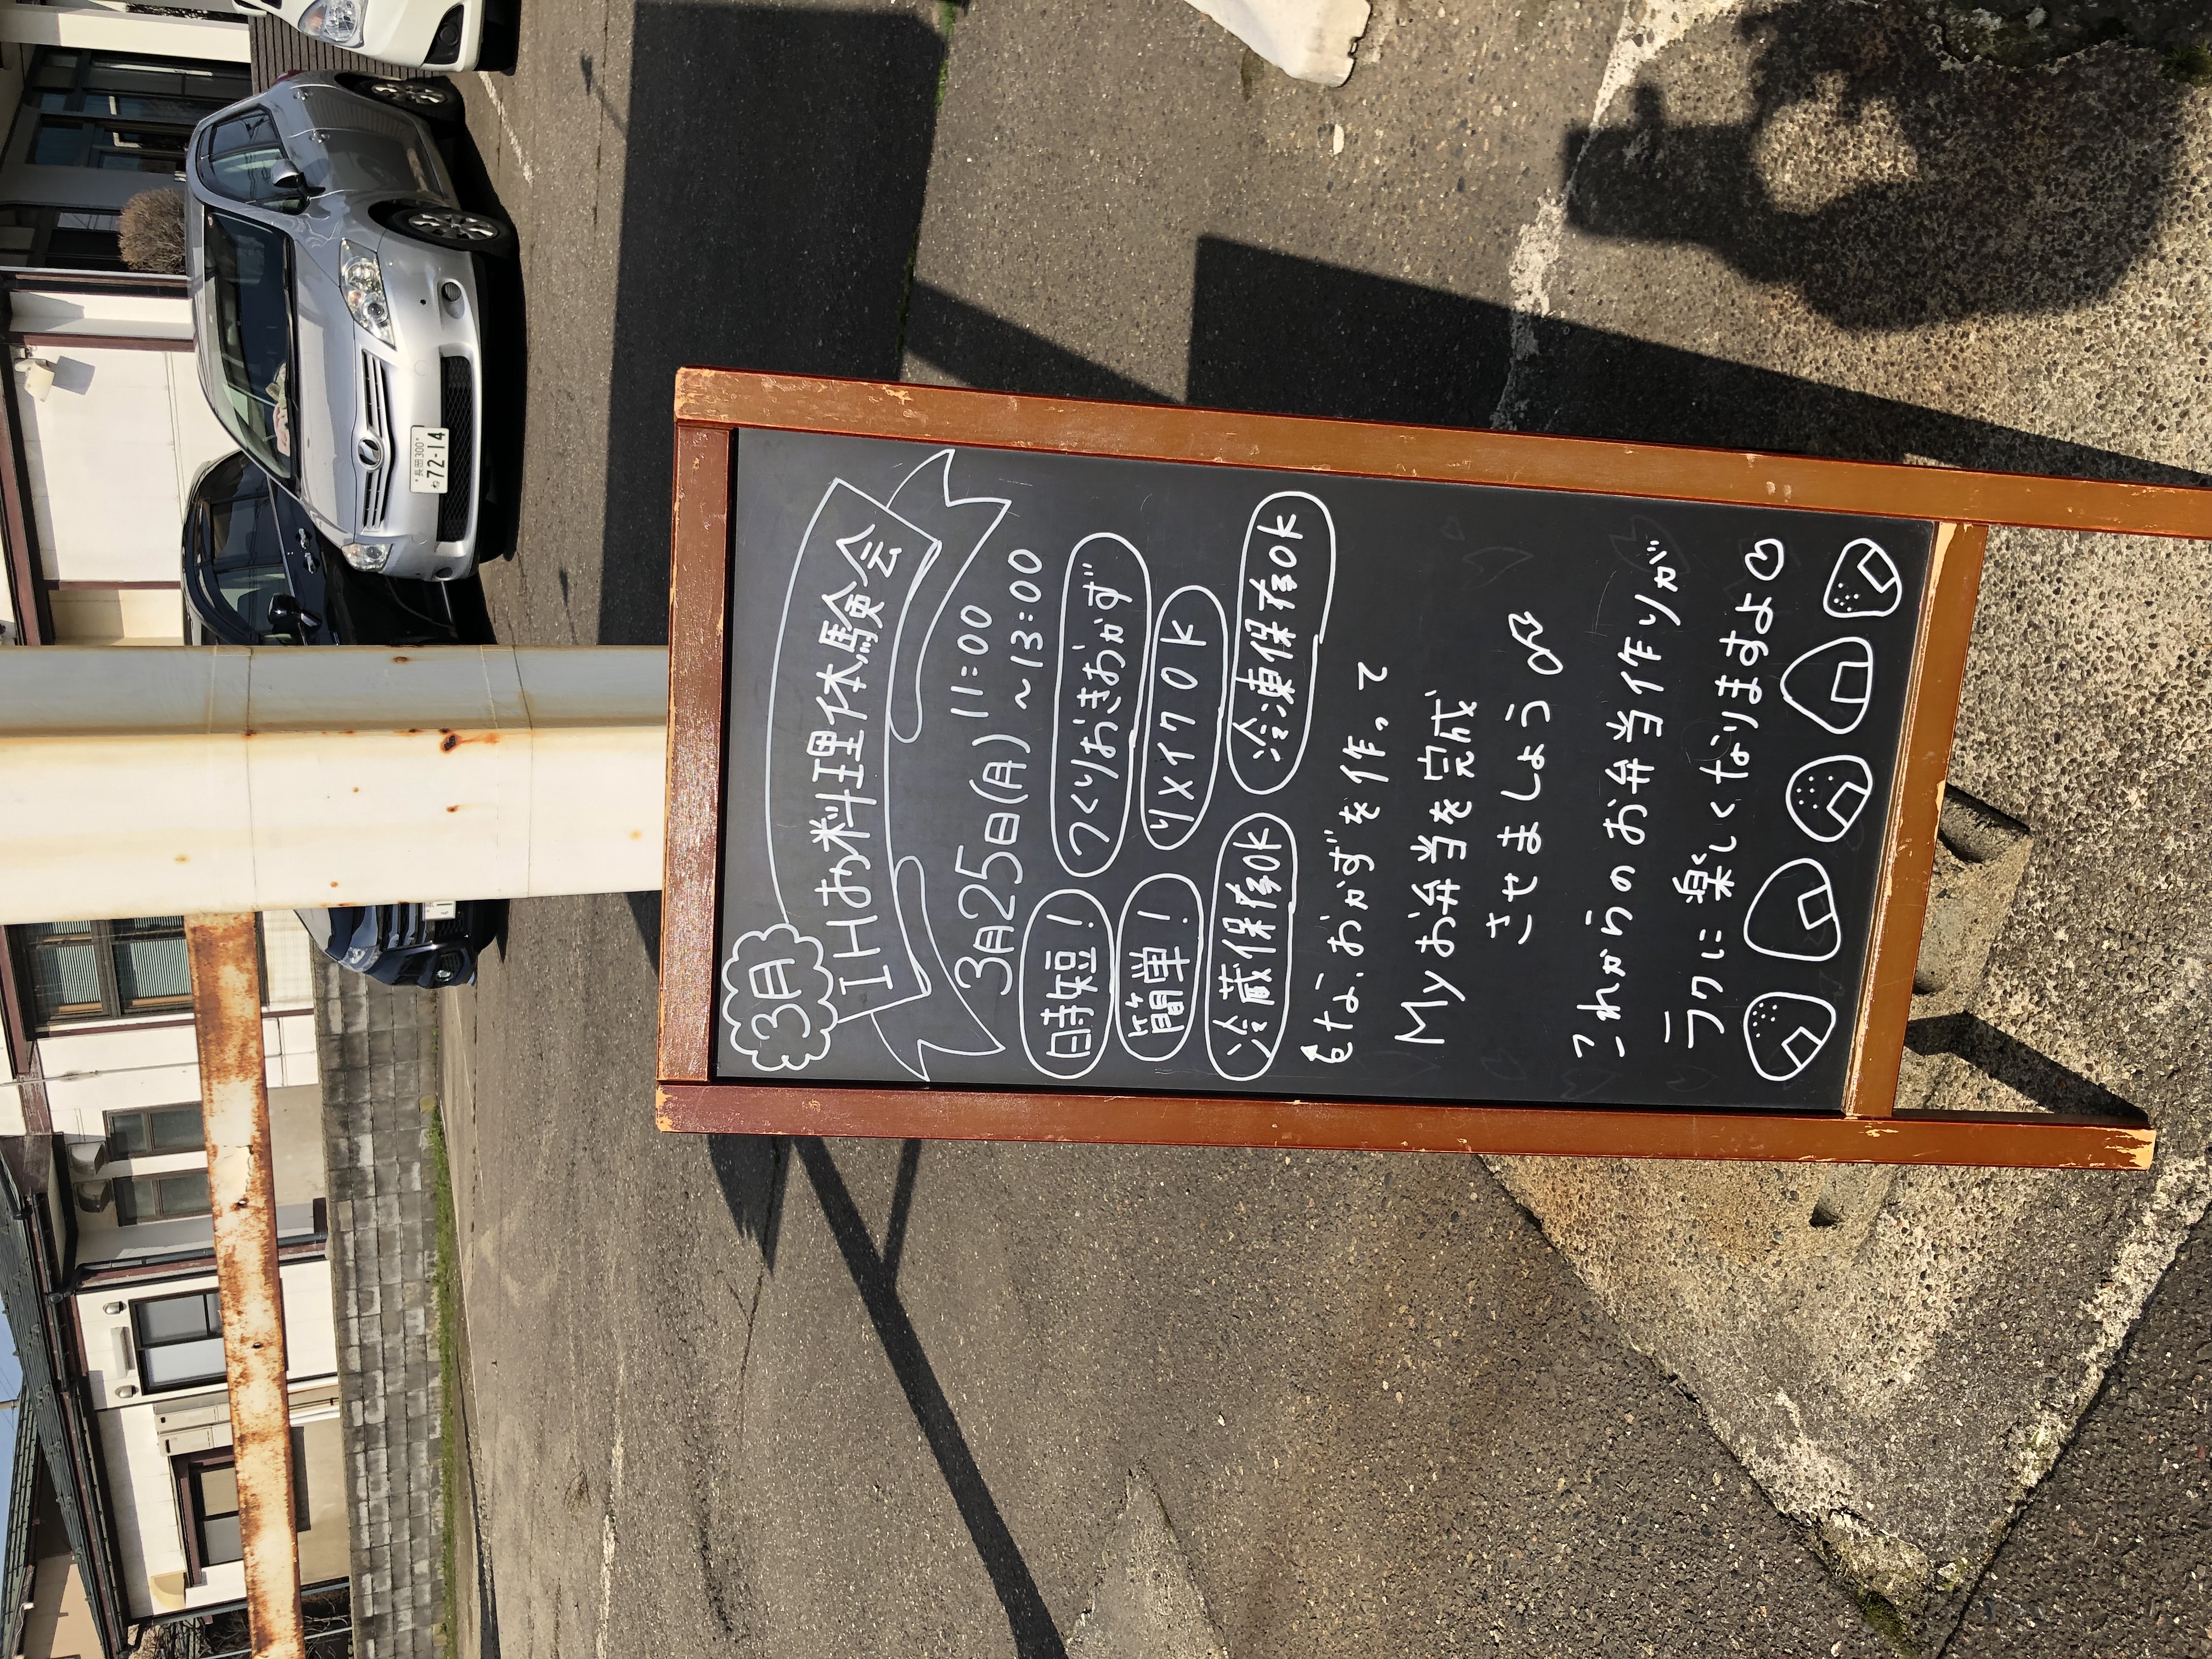 3月
IHお料理体験会
3月25日(月) 11:00
～13:00
時短! つくりおきおかず
簡単! リメイクOK
冷蔵保存OK 冷凍保存OK
なおかずを作って
Myお弁当を完成
させましょう
これからのお弁当作りが
ラクに楽しくなりますよ♡
長岡 300
72-14